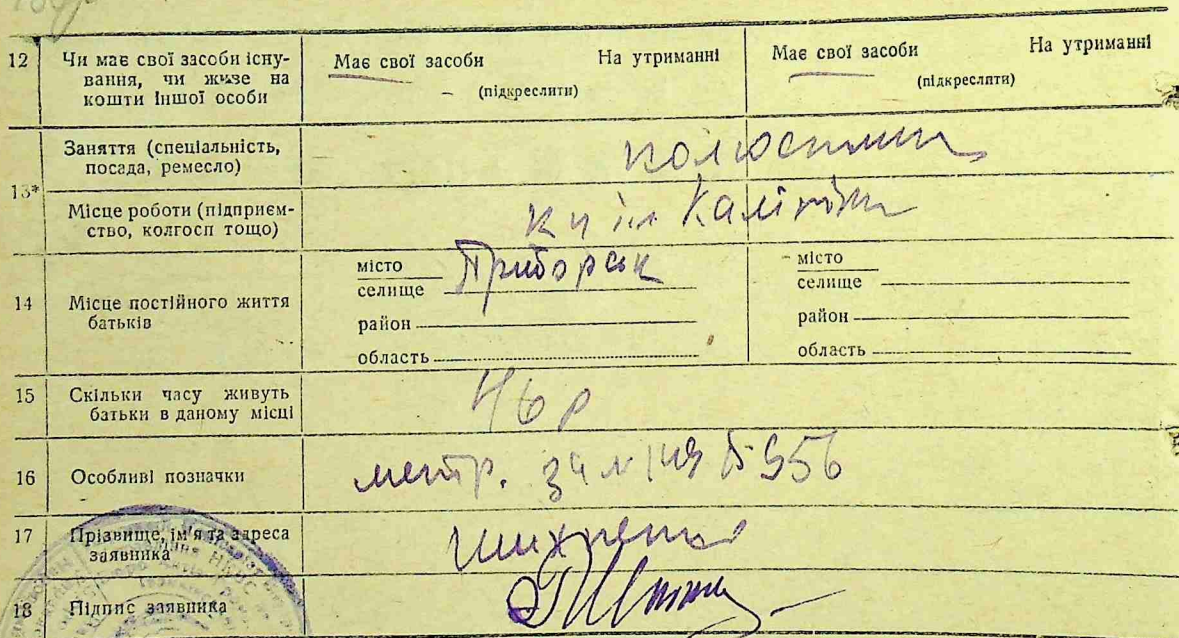 12 Чи має свої засоби існу-
вання, чи живе на
кошти іншої особи
Має свої засоби На утриманні
(підкреслити)
Має свої засоби На утриманні
(підкреслити)
13*
Заняття (спеціальність,
посада, ремесло)
Місце роботи (підприєм-
ство, колгосп тощо)
Калініна
14 Місце постійного життя
батьків
місто
селище Приборськ
район
область
місто
селище
район
область
15 Скільки часу живуть
батьки в даному місці
46 р
16 Особливі позначки
метр. за №
17 Прізвище, ім'я та адреса
заявника
18 Підпис заявника